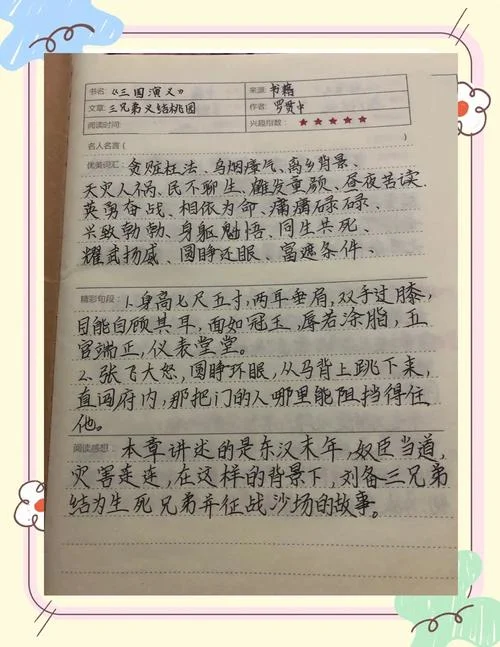 书名:《三国演义》 来源:书籍
文章:三兄弟义结桃园 作者:罗贯中
阅读时间: 兴趣指数:★★★★★
名人名言( )
优美词汇:贪赃枉法、乌烟瘴气、离乡背景、
天灾人祸、民不聊生、鹤发童颜、昼夜苦读、
英勇奋战、相依为命、庸庸碌碌、
兴致勃勃、身躯魁悟、同生共死、
耀武扬威、圆睁还眼、富遮条件、
精彩句段:1.身高七尺五寸,两耳垂肩,双手过膝,
目能自顾其耳,面如冠玉,唇若涂脂,五
官端正,仪表堂堂。
2.张飞大怒,圆睁环眼,从马背上跳下来,
直闯府内,那把门的人哪里能阻挡得住
他。
阅读感想:本章讲述的是东汉末年,奴臣当道,
灾害连连,在这样的背景下,刘备三兄弟
结为生死兄弟并征战沙场的故事。